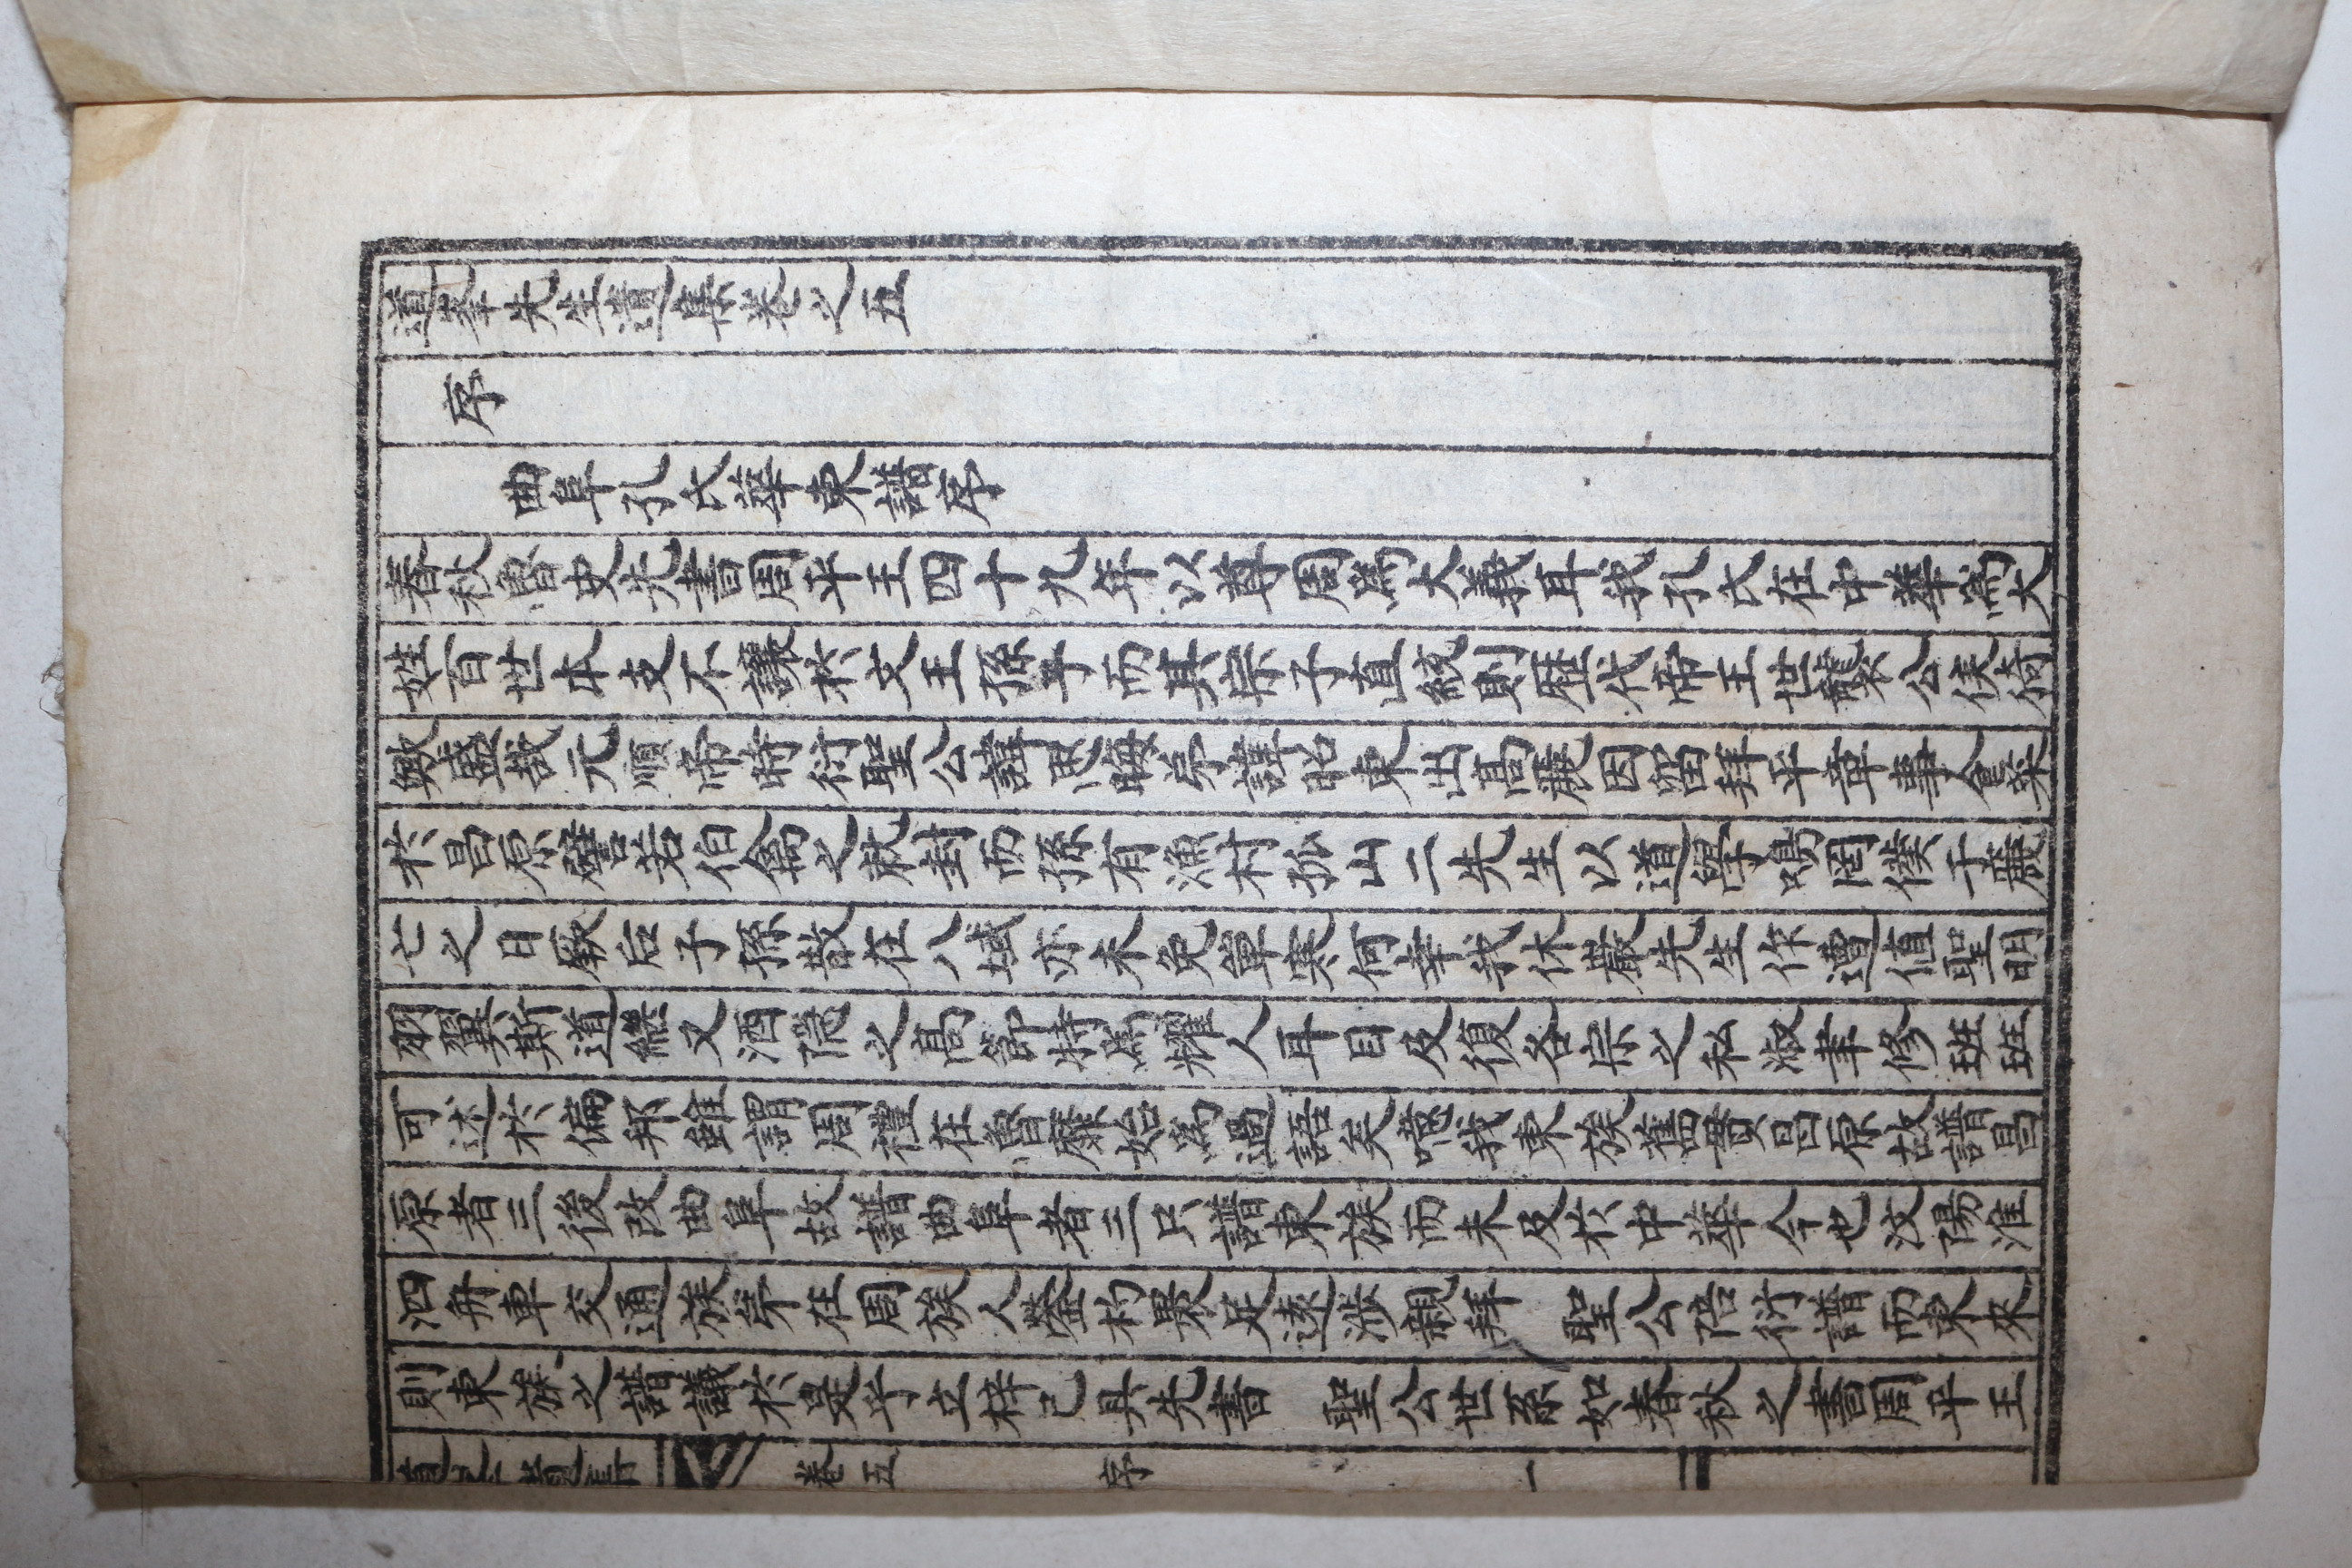 道峯先生遺集卷之五
序
曲阜孔氏華東譜序
春秋魯史先書周平王四十九年以尊周爲大義耳我孔氏在中華爲大
姓百世本支不讓於文王孫子而其宗子直統則歷代帝王世襲公侯猗
歟盛哉元順帝時衍聖公諱思晦弟諱昭東出高麗因留拜平章事食采
於昌原譬若伯禽之就封而孫有漁村孤山二先生以道學爲罔僕于麗
亡之日厥后子孫散在八域亦未免單寒何幸我休巖先生作遭値聖明
羽翼斯道然又酒隱之高節特爲耀人耳目及復各宗之私淑幸修班班
可述於偏邦雖謂周禮在魯庶始爲過語矣噫我東族舊貫昌原故譜昌
原者三後改曲阜故譜曲阜者三只譜東族而未及於中華今也汶陽淮
泗舟車交通族弟在周族人瑩杓累足遠涉親拜 聖公陪衍譜而東來
則東族之譜議於是乎立梓已具先書 聖公世系如春秋之書周平王
卷五 序 一